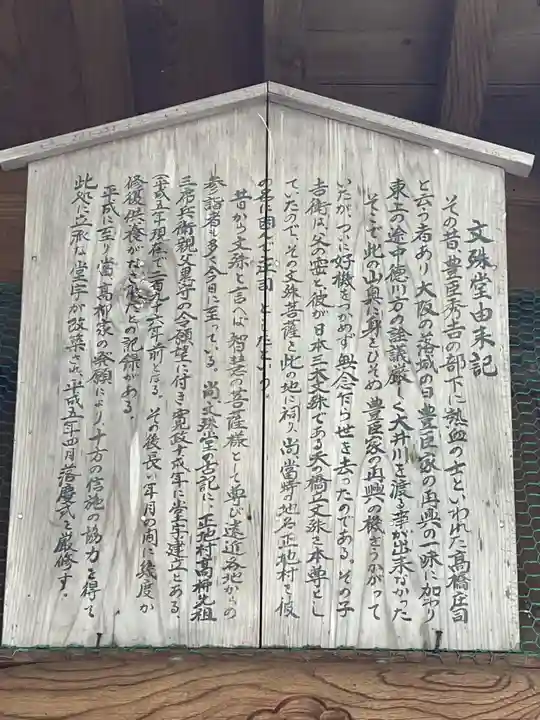 文殊堂由来記
その昔、豊臣秀吉の部下に熱血の士といわれた高橋庄司
と云う者あり 大阪の落城の日 豊臣家の再興の一味に加わり
東上の途中徳川方の詮議厳しく大井川を渡る事が出来なかった
そこで此の山奥に身をひそめ 豊臣家の再興の機をうかがって
いたがついに好機をつかめず無念乍ら世を去ったのである。その子
吉衛は父の安と彼が日本三大文殊である天の橋立文殊を本尊とし
ていたので、その文殊菩薩を此の地に祠り、尚当時の地名正地村を彼
の名に因んで庄司としたという。
昔から文殊と言へば智慧の菩薩様として尊び遠近各地からの
参詣者も多く今日に至っている。尚文殊堂の古記に、正地村高柳先祖
三郎兵衛親父男守の念願望に付き寛政十戌年に堂宇建立とある。
(平成六年現在で二百九十六年前となる。その後長い年月の間に幾度か
修復供養がなされたとの記録がある。
平成に至り当、高柳家の発願により十方の信施の協力を得て
此処に立派な堂宇が改築され、平成五年四月落慶式を厳修す。